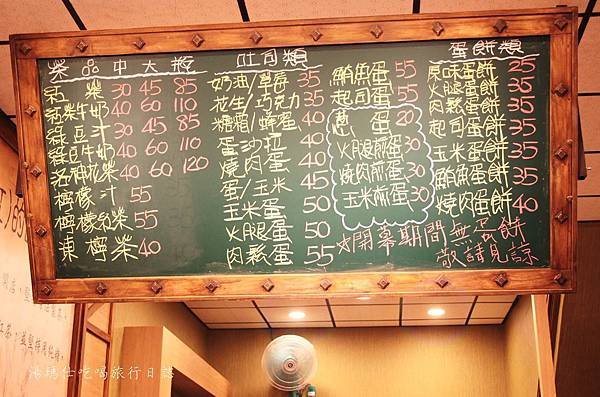 茶品中大瓶
紅茶 30 45 85
紅茶牛奶 40 60 110
綠豆汁 30 45 85
綠豆牛奶 40 60 110
洛神花茶 40 60 120
檸檬汁 55
檸檬紅茶 55
凍檸茶 40
吐司類
奶油/草莓 35
花生/巧克力 35
糖霜/蜂蜜 40
蛋沙拉 40
燒肉蛋 50
蛋/玉米 45
玉米蛋 50
火腿蛋 50
肉鬆蛋 55
鮪魚蛋 55
起司蛋 55
蔥蛋 20
火腿煎蛋 30
燒肉煎蛋 30
玉米煎蛋 30
蛋餅類
原味蛋餅 25
火腿蛋餅 35
肉鬆蛋餅 35
起司蛋餅 35
玉米蛋餅 35
鮪魚蛋餅 35
燒肉蛋餅 40
☆開幕期間無蛋餅
敬請見諒
湯瑪仕吃喝旅行日誌